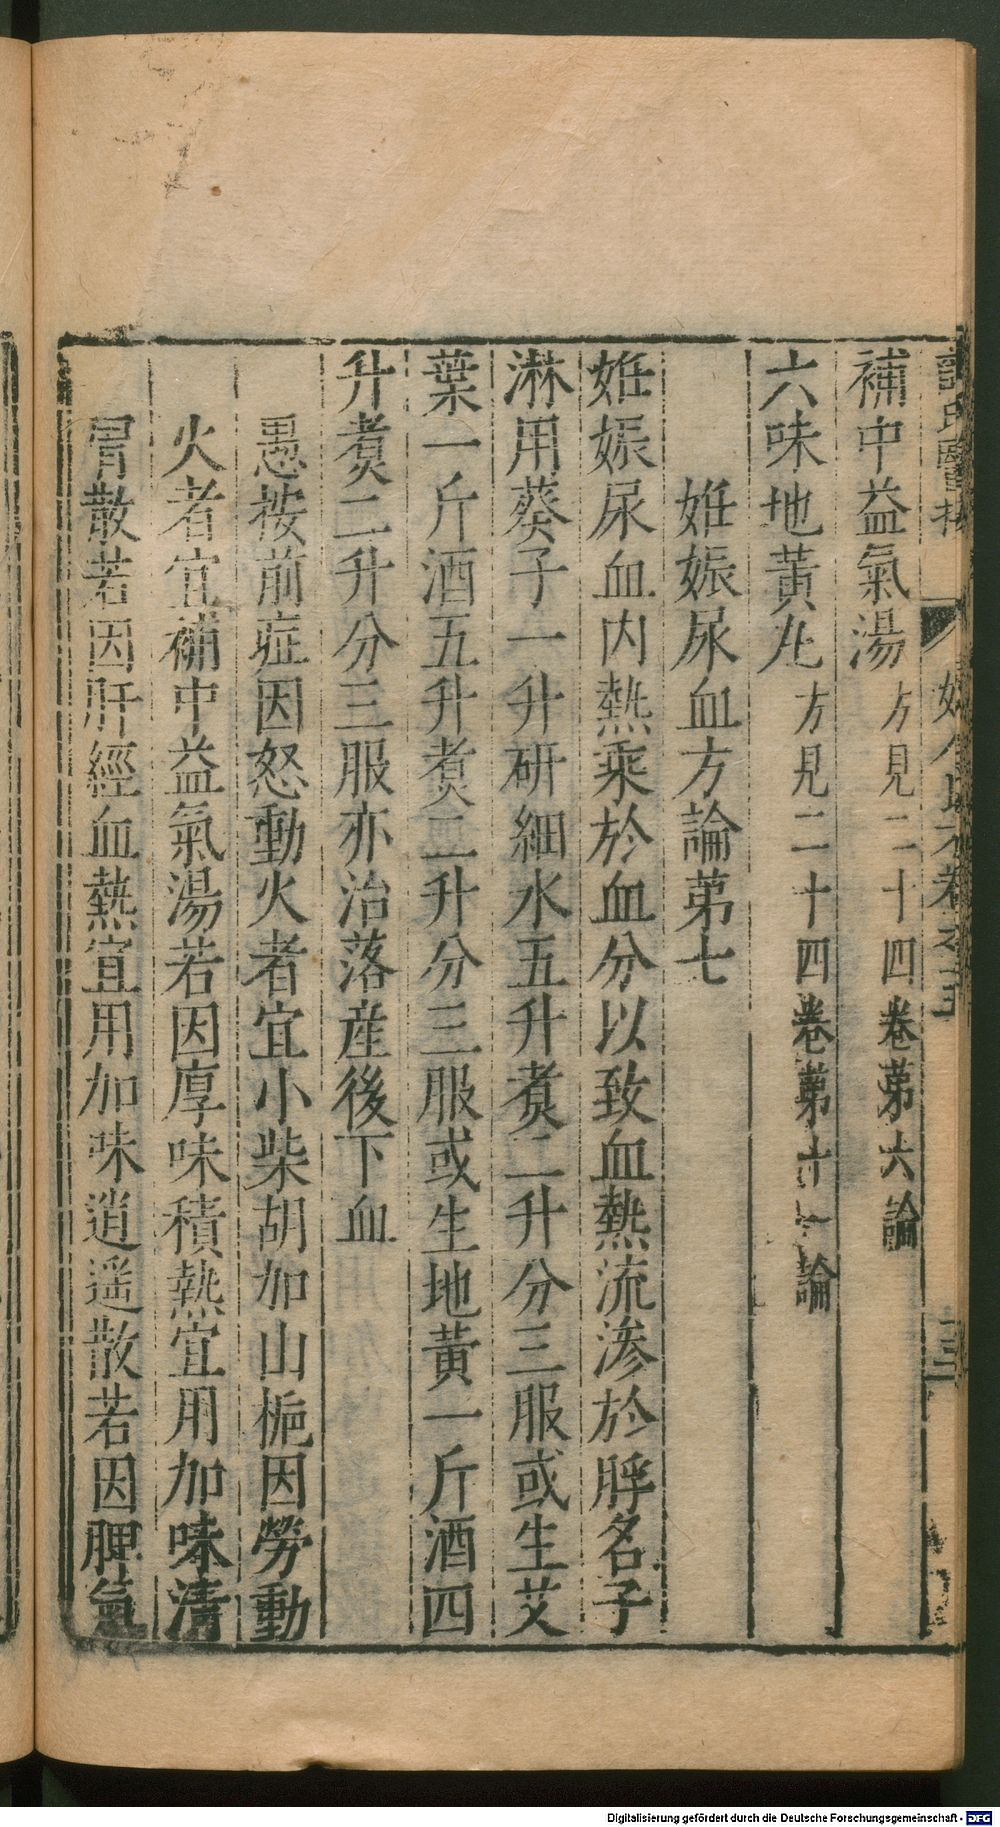 補中益氣湯方見二十四卷第六論
六味地黃丸方見二十四卷第十一論
姙娠尿血方論第七
姙娠尿血内熱乘於血分以致血熱流滲於脬名子
淋用葵子一升研細水五升煑二升分三服或生艾
葉一斤酒五升煑二升分三服或生地黃一斤酒四
升煑二升分三服亦治落産後下血
愚按前症因怒動火者宜小柴胡加山梔因勞動
火者宜補中益氣湯若因厚味積熱宜用加味清
胃散若因肝經血熱宜用加味逍遥散若因脾氣
Digitalisierung gefördert durch die Deutsche Forschungsgemeinschaft - DFG